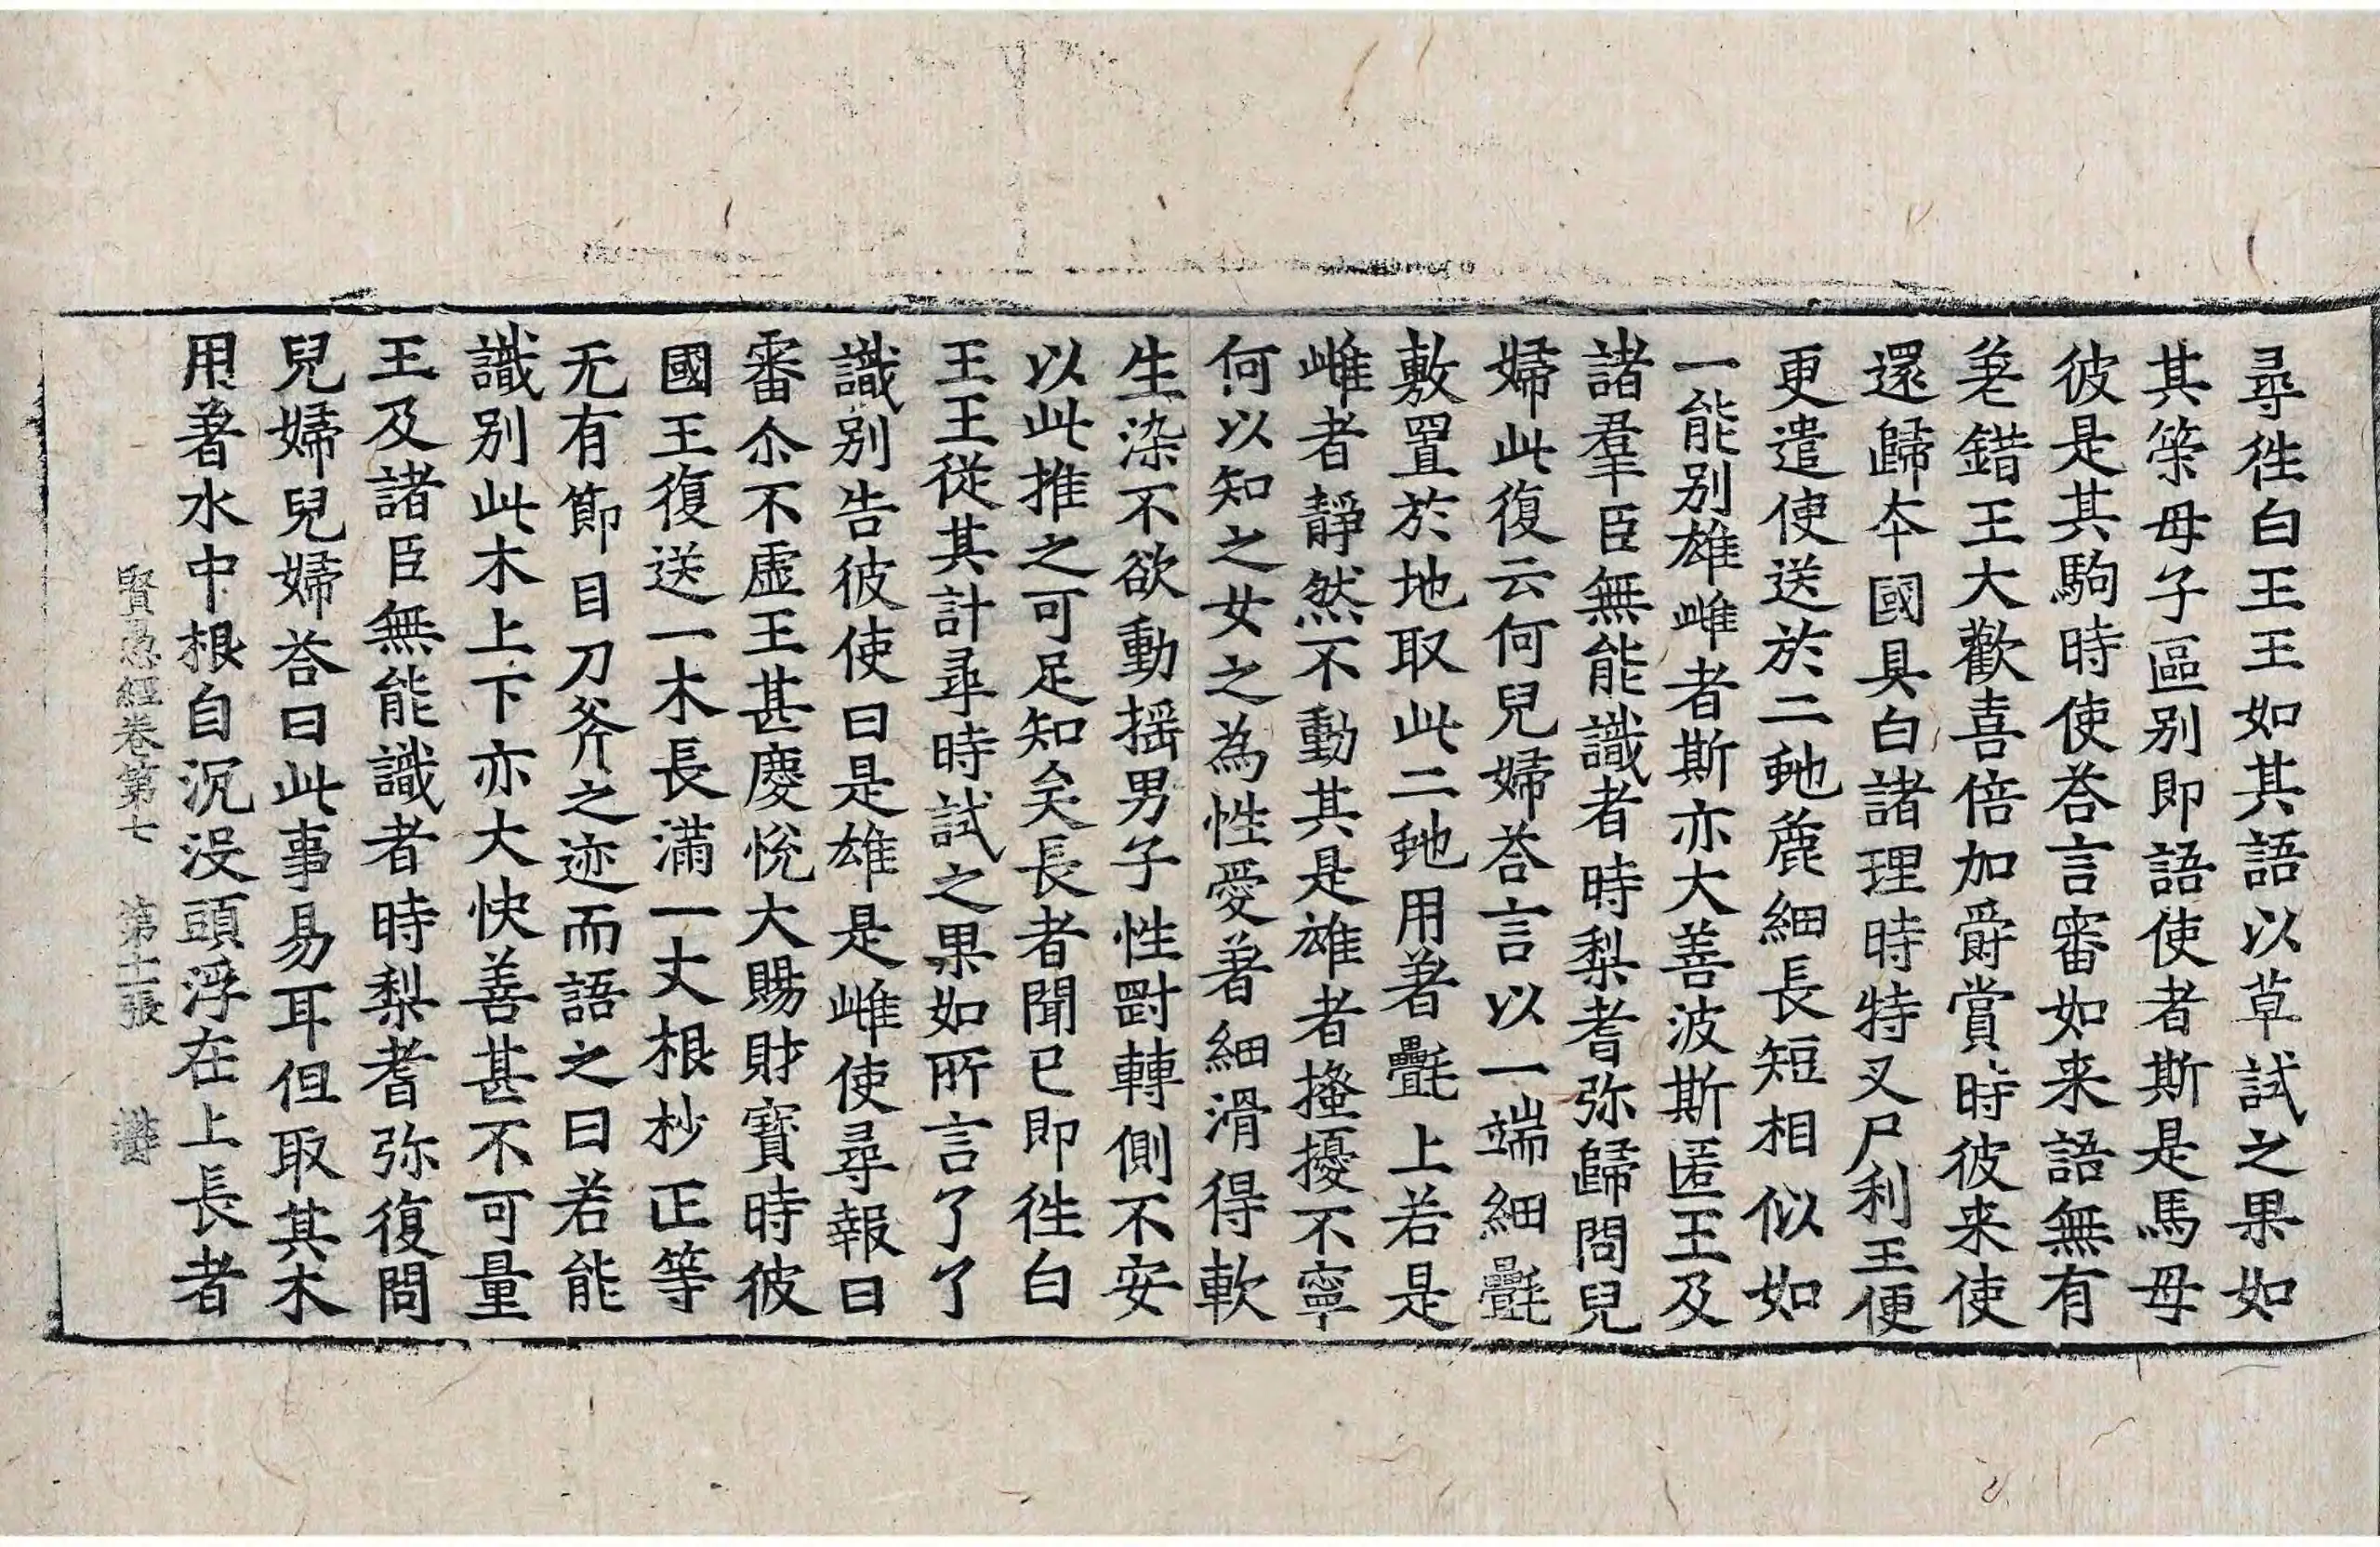 尋徃白王王如其語以草試之果如
其筞母子區別即語使者斯是馬母
彼是其駒時使荅言審如来語無有
差錯王大歡喜倍加爵賞時彼来使
還歸夲國具白諸理時特叉尸利王便
更遣使送於二虵麁細長短相似如
一能別雄雌者斯亦大善波斯匿王及
諸羣臣無能識者時梨耆弥歸問兒
婦此復云何兒婦荅言以一端細㲲
敷置於地取此二虵用著㲲上若是
雌者靜然不動其是雄者搔擾不寧
何以知之女之為性愛著細滑得軟
生染不欲動揺男子性㓰轉側不安
以此推之可足知矣長者聞已即徃白
王王從其計尋時試之果如所言了了
識別告彼使曰是雄是雌使尋報曰
審尒不虛王甚慶悅大賜財寶時彼
國王復送一木長滿一丈根杪正等
无有節目刀斧之迹而語之曰若能
識別此木上下亦大快善甚不可量
王及諸臣無能識者時梨耆弥復問
兒婦兒婦荅曰此事易耳但取其木
用著水中根自沉没頭浮在上長者
賢愚經卷第七 第十二張 鬱